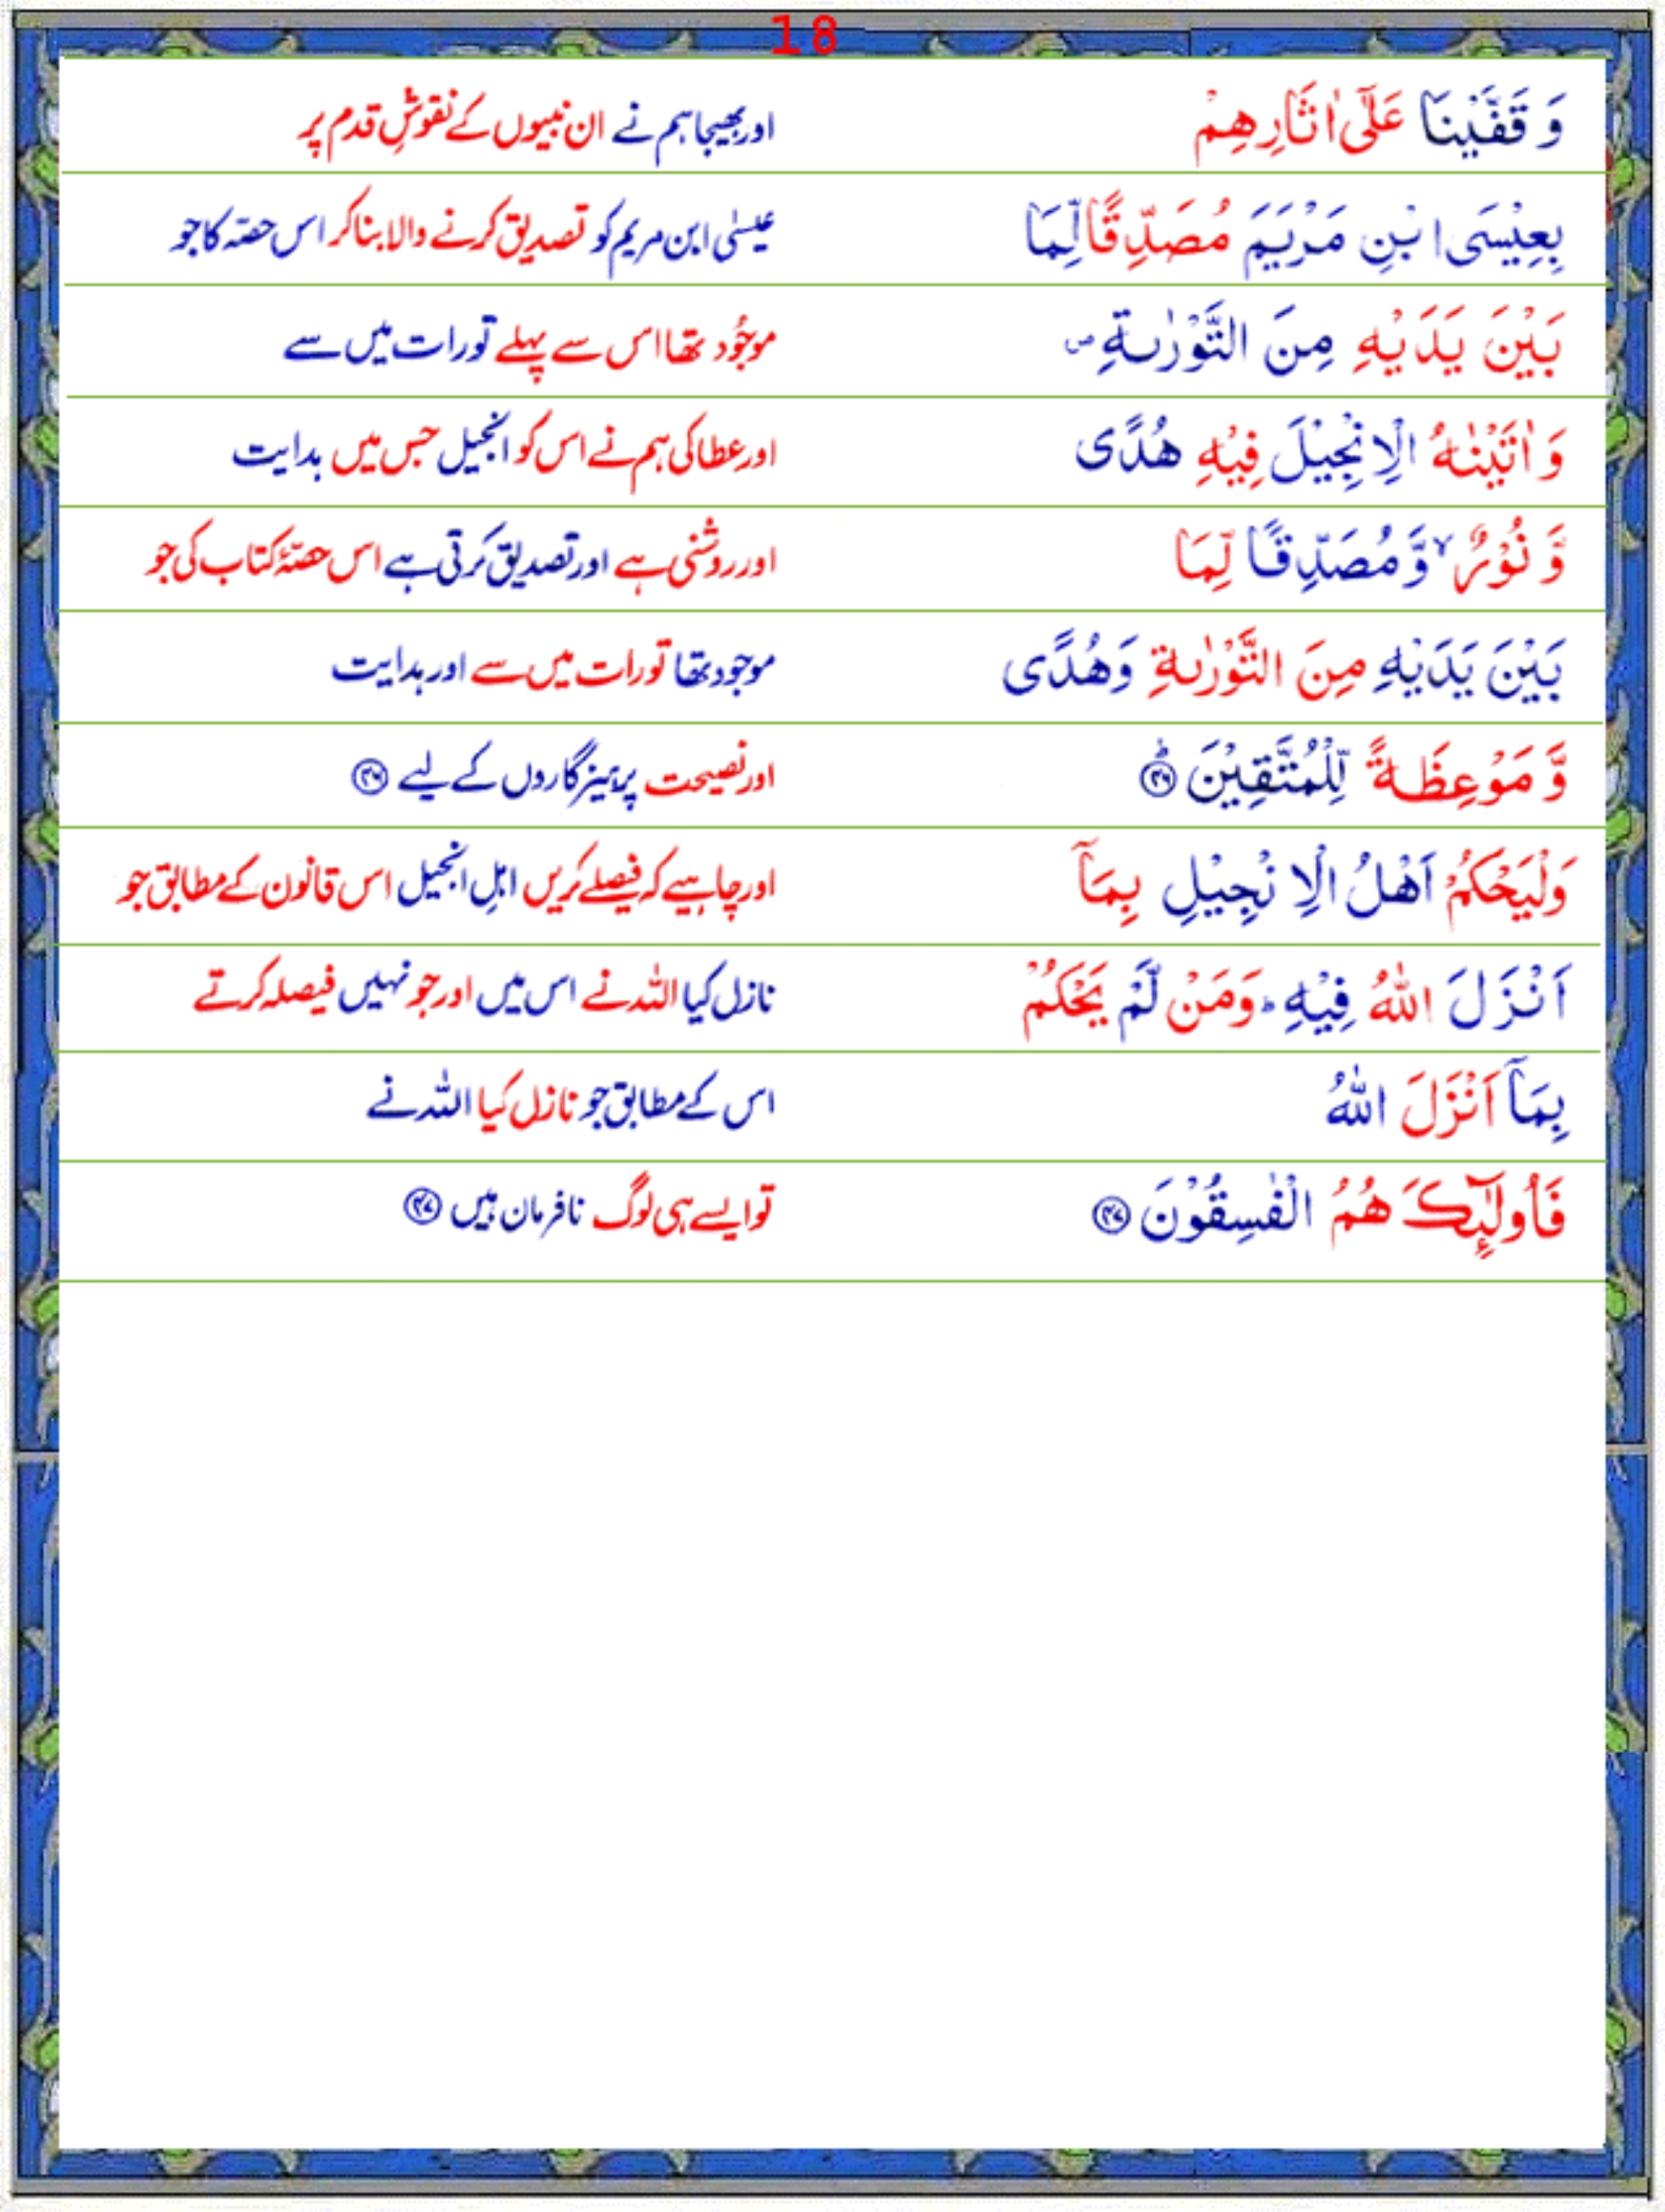 18
وَ قَفَّيْنَا عَلٰٓى اٰثَارِهِمْ اور بھیجا ہم نے ان نبیوں کے نقوشِ قدم پر
بِعِيْسَى ابْنِ مَرْيَمَ مُصَدِّقًا لِّمَا عیسٰی ابن مریم کو تصدیق کرنے والا بنا کر اس حصّہ کا جو
بَيْنَ يَدَيْهِ مِنَ التَّوْرٰىةِ ۪ موجُود تھا اس سے پہلے تورات میں سے
وَ اٰتَيْنٰهُ الْاِنْجِيْلَ فِيْهِ هُدًى اور عطا کی ہم نے اس کو انجیل جس میں ہدایت
وَّ نُوْرٌ ۙ وَّ مُصَدِّقًا لِّمَا اور روشنی ہے اور تصدیق کرتی ہے اس حصّۂ کتاب کی جو
بَيْنَ يَدَيْهِ مِنَ التَّوْرٰىةِ وَهُدًى موجود تھا تورات میں سے اور ہدایت
وَّ مَوْعِظَةً لِّلْمُتَّقِيْنَ ؕ ۴۶ اور نصیحت پرہیزگاروں کے لیے ۴۶
وَلْيَحْكُمْ اَهْلُ الْاِنْجِيْلِ بِمَآ اور چاہیے کہ فیصلے کریں اہلِ انجیل اس قانون کے مطابق جو
اَنْزَلَ اللّٰهُ فِيْهِ ؕ وَمَنْ لَّمْ يَحْكُمْ نازل کیا اللہ نے اس میں اور جو نہیں فیصلہ کرتے
بِمَآ اَنْزَلَ اللّٰهُ اس کے مطابق جو نازل کیا اللہ نے
فَاُولٰٓئِكَ هُمُ الْفٰسِقُوْنَ ۴۷ تو ایسے ہی لوگ نافرمان ہیں ۴۷